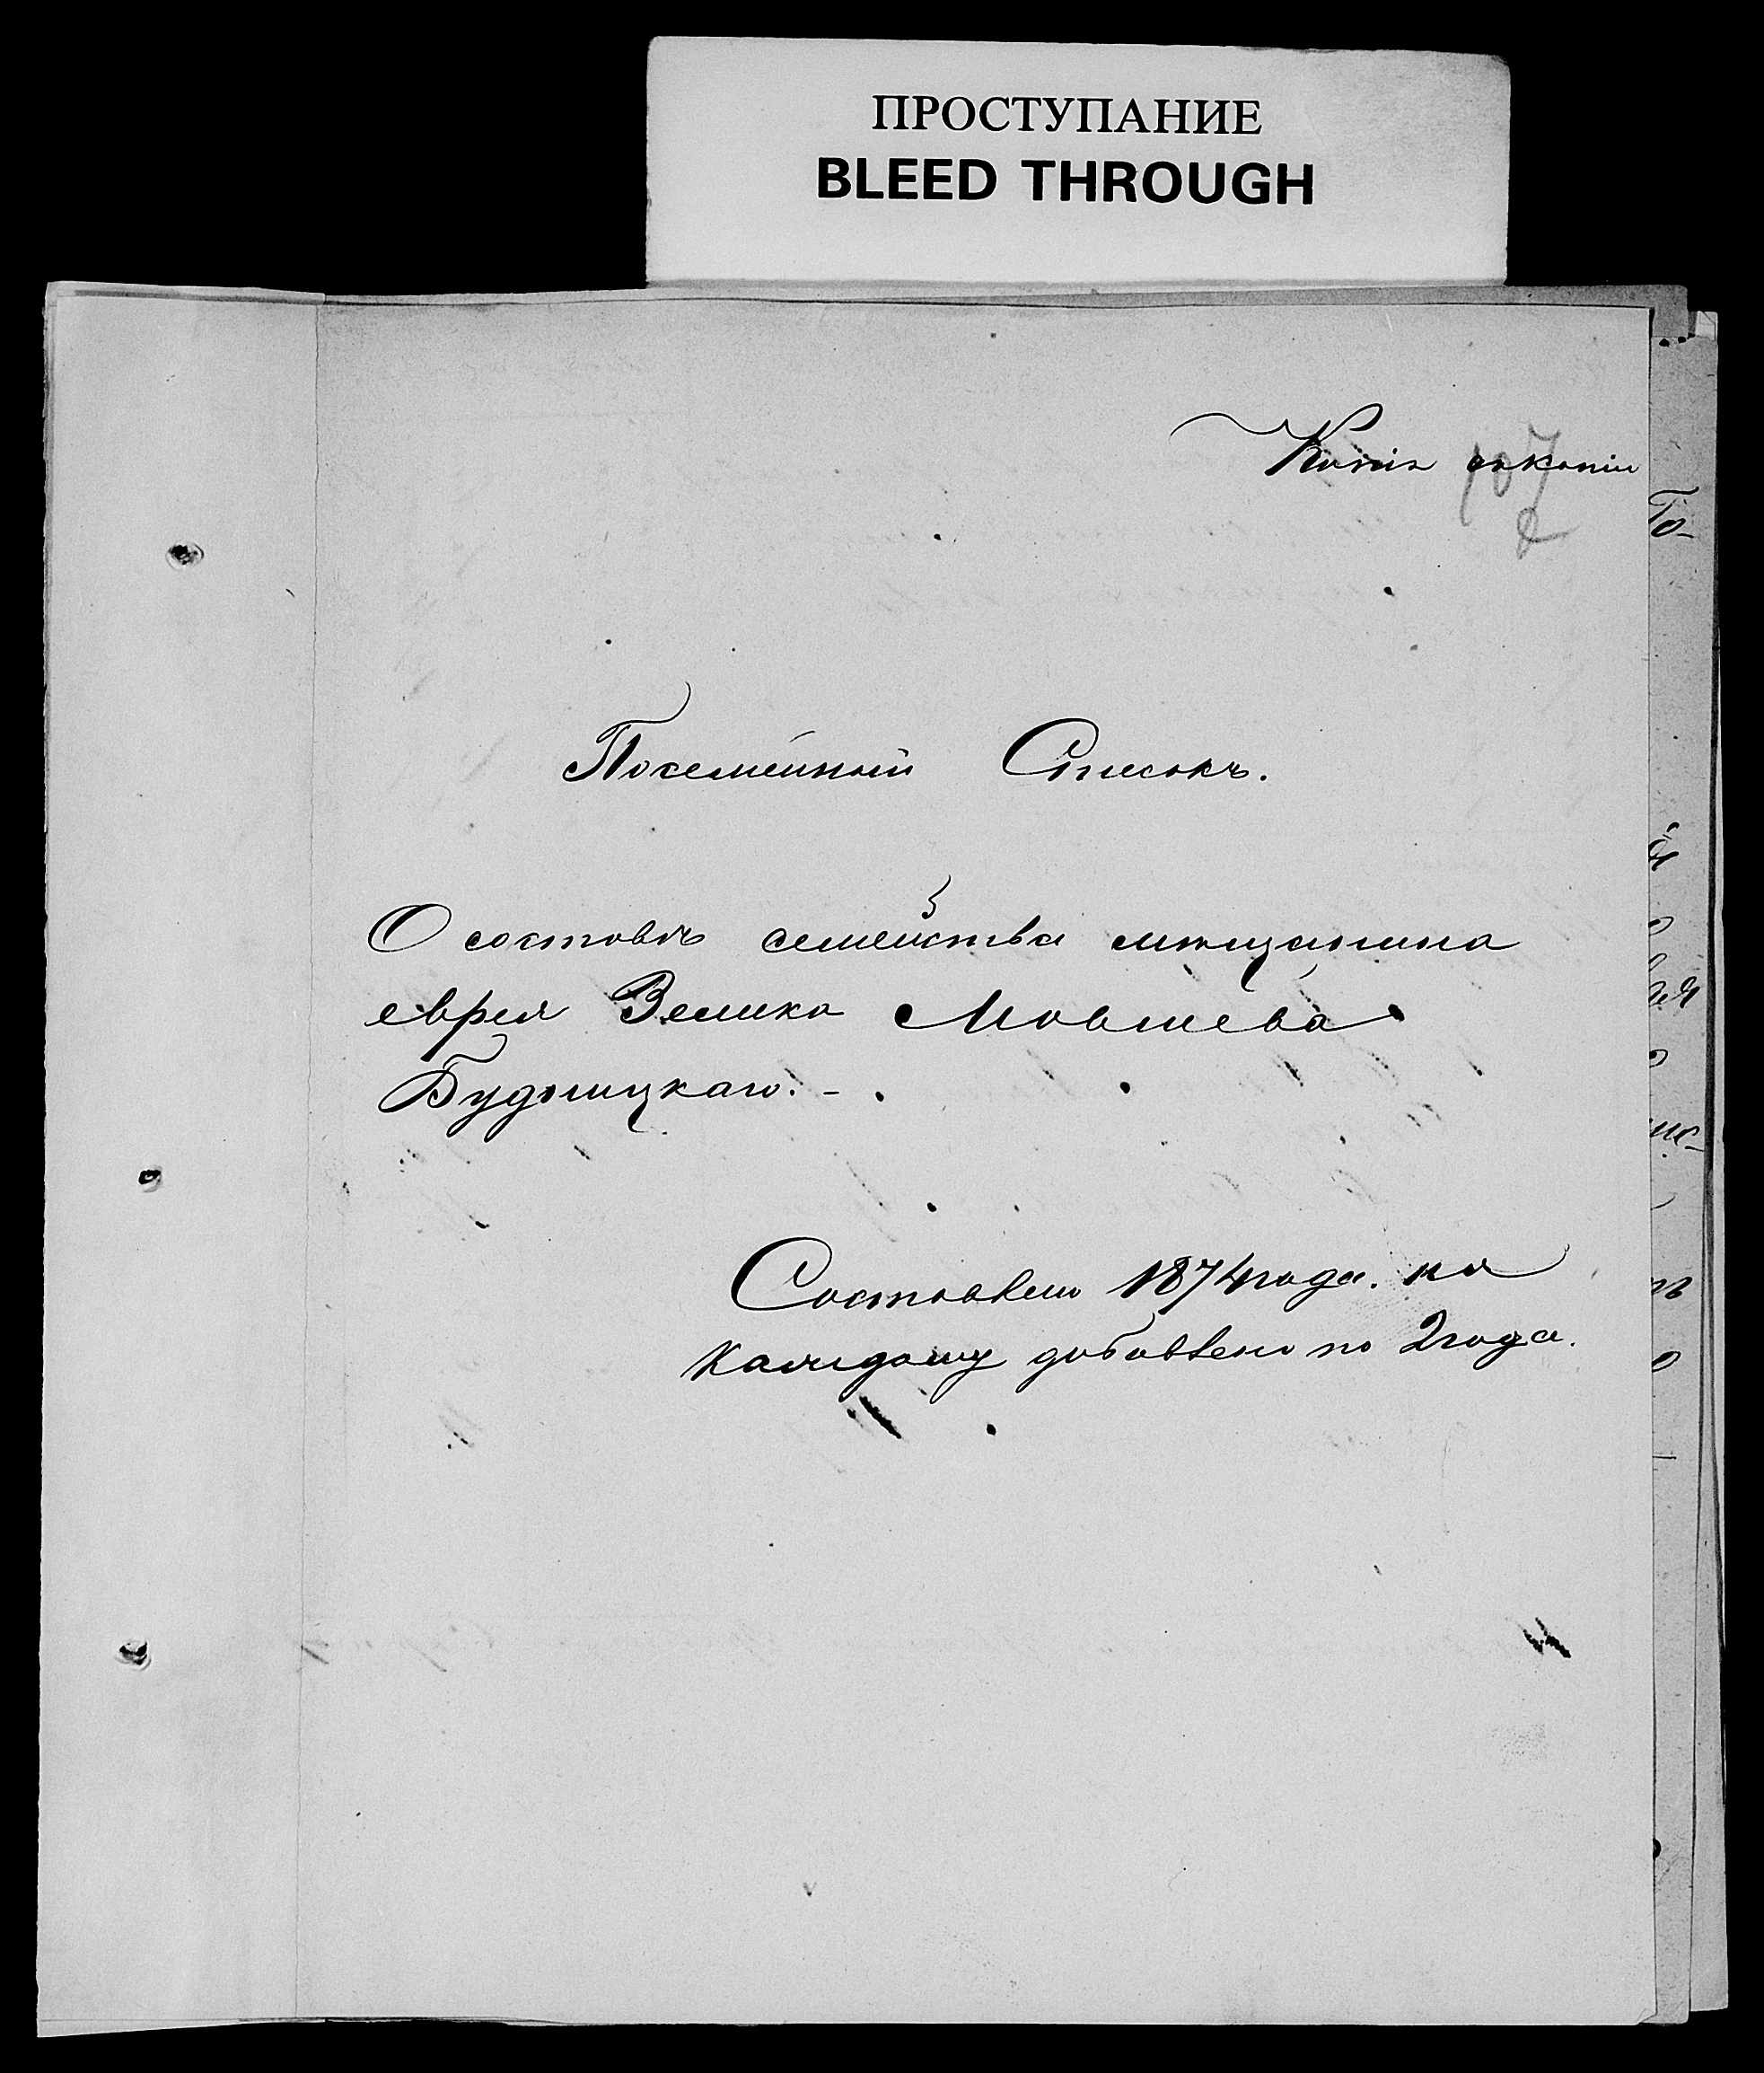 ПРОСТУПАНИЕ
BLEED THROUGH
Копія съ копіи
107
Посемейный Списокъ.
О составѣ семейства мѣщанина
еврея Зелика Мовшева
Будницкаго. -
Составлен 1874 года. на
каждому добавлено по 2 года.